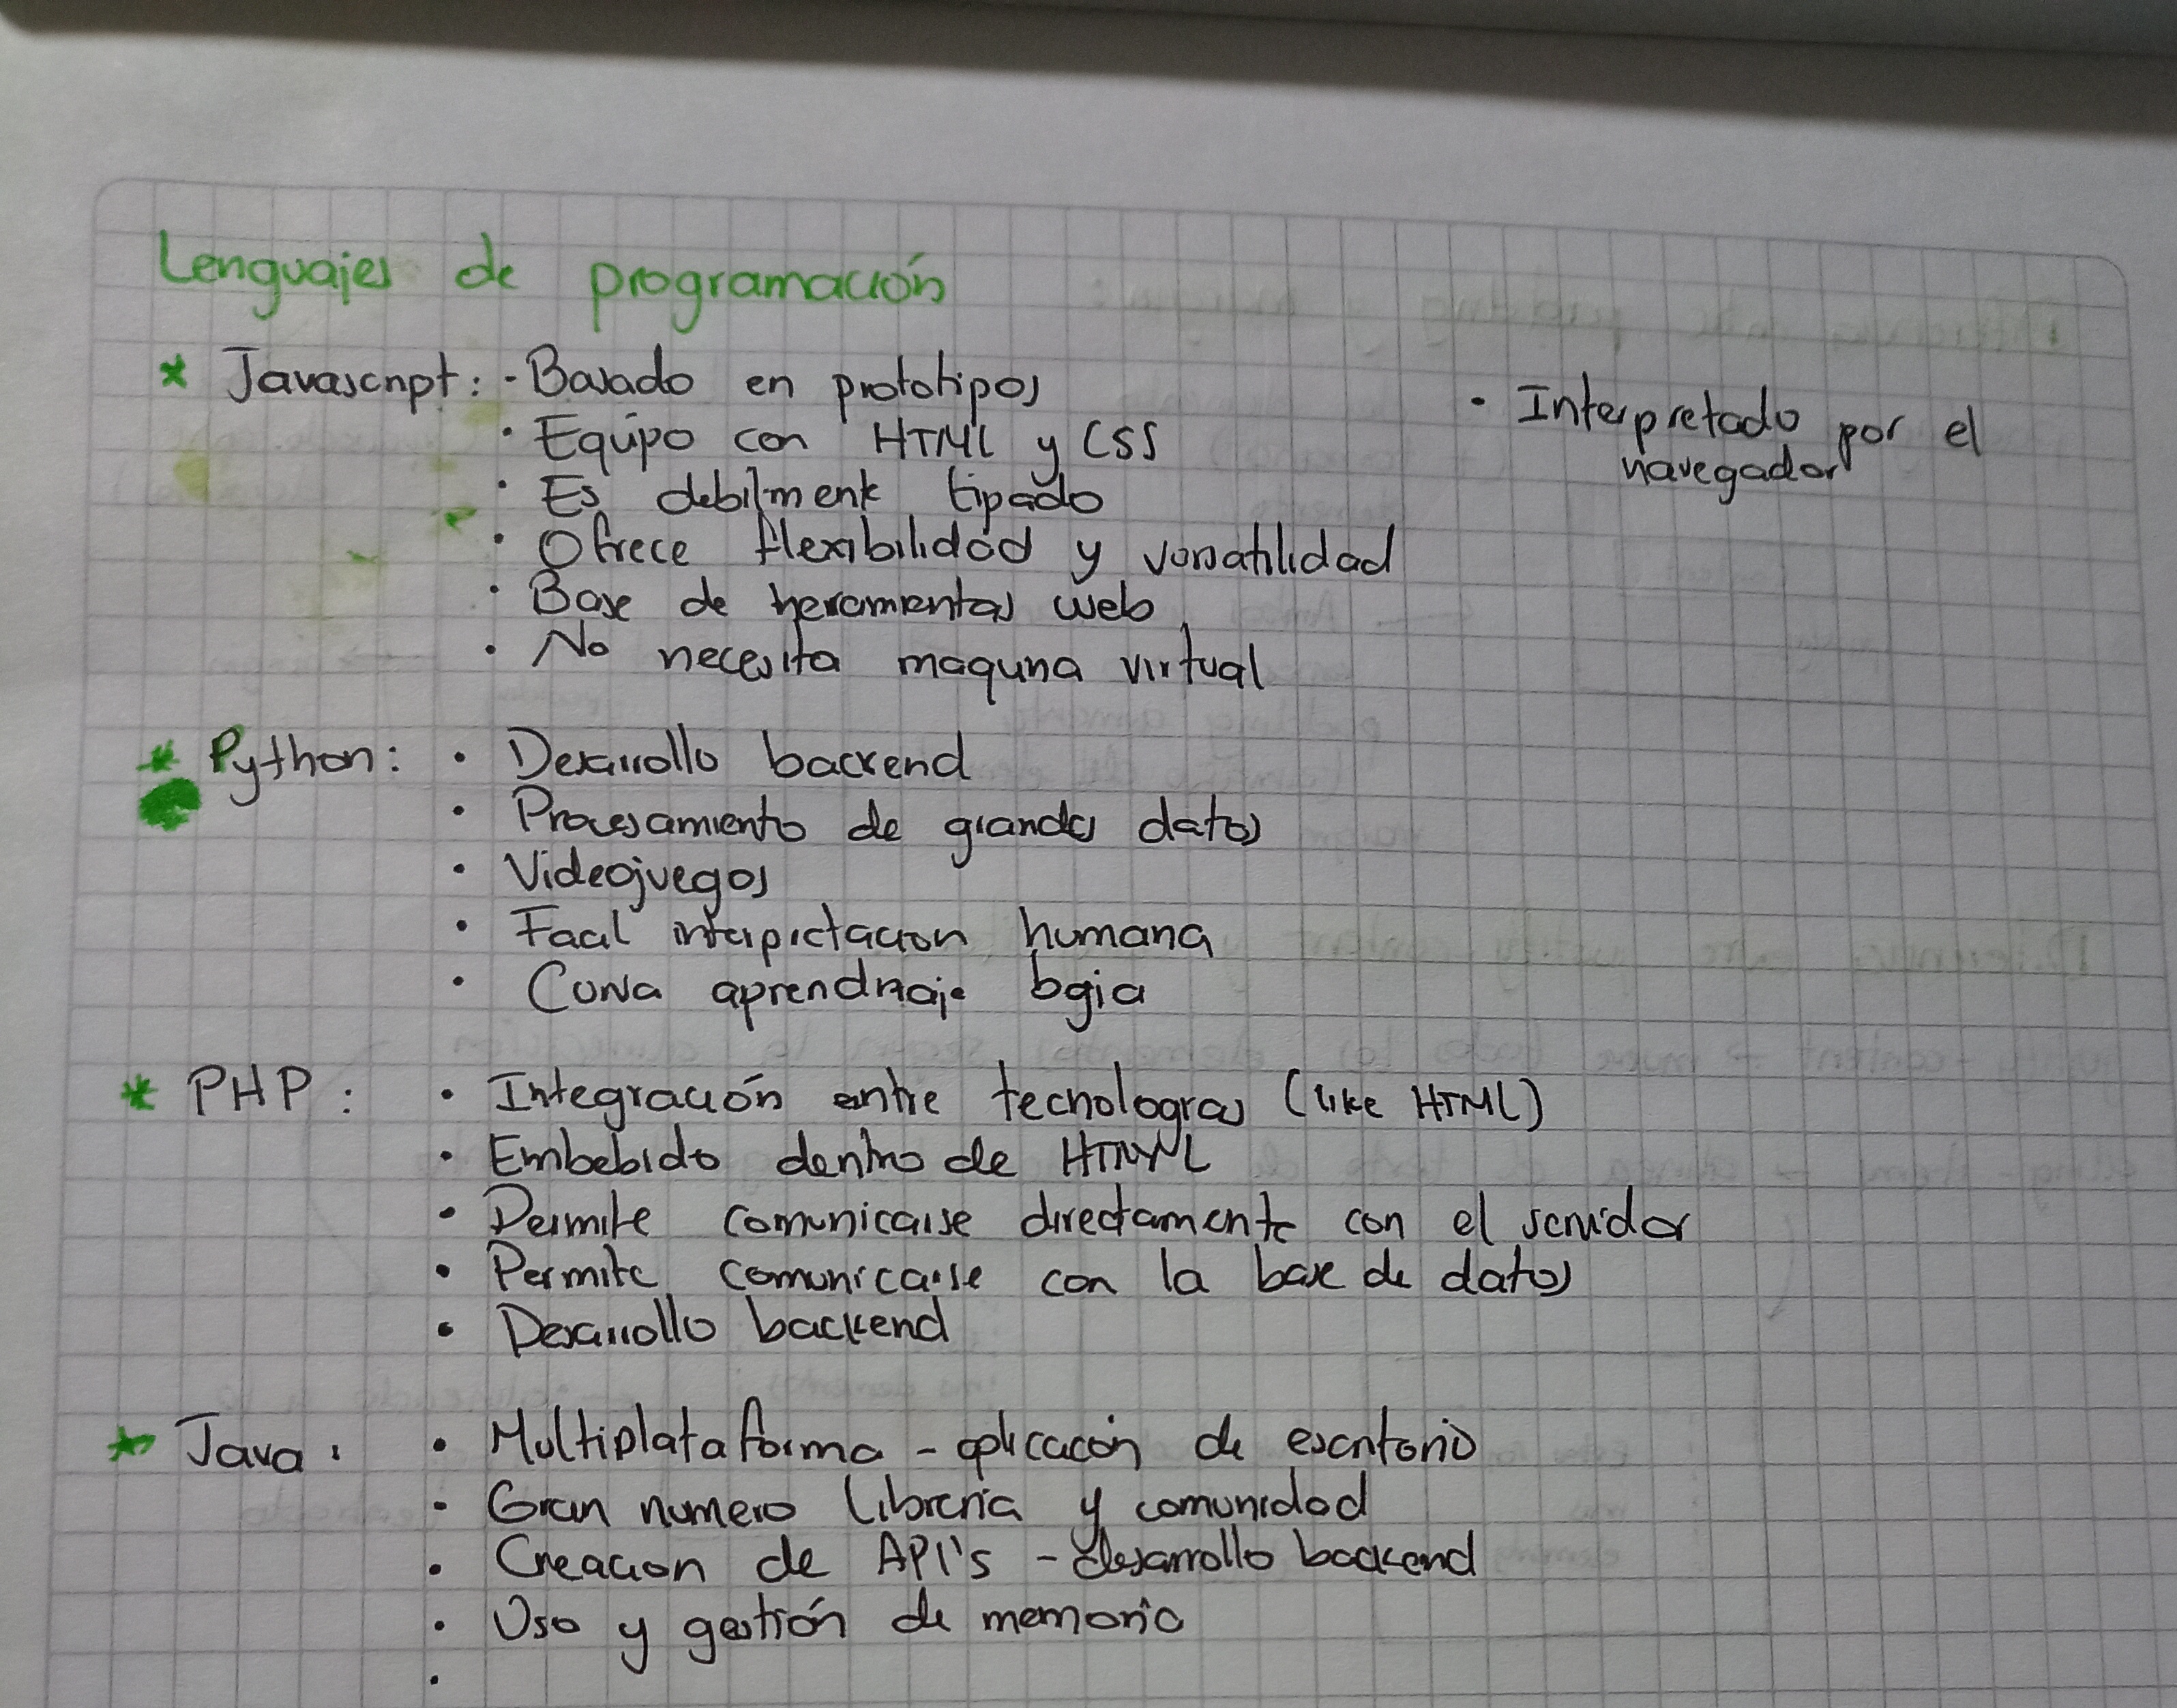 Lenguajes de programación
* Javascript: - Basado en prototipos
· Equipo con HTML y CSS
· Es debilmente tipado
· Ofrece flexibilidad y versatilidad
· Base de heramientas web
· No necesita maquina virtual
· Interpretado por el
navegador
* Python: · Desarrollo backend
· Procesamiento de grandes datos
· Videojuegos
· Facil interpretacion humana
· Curva aprendizaje bgia
* PHP: · Integración entre tecnologias (like HTML)
· Embebido dentro de HTML
· Permite comunicarse directamente con el servidor
· Permite comunicarse con la base de datos
· Desarrollo backend
* Java: · Multiplataforma - aplicación de escritorio
· Gran numero librería y comunidad
· Creacion de API's - desarrollo backend
· Uso y gestión de memoria
·